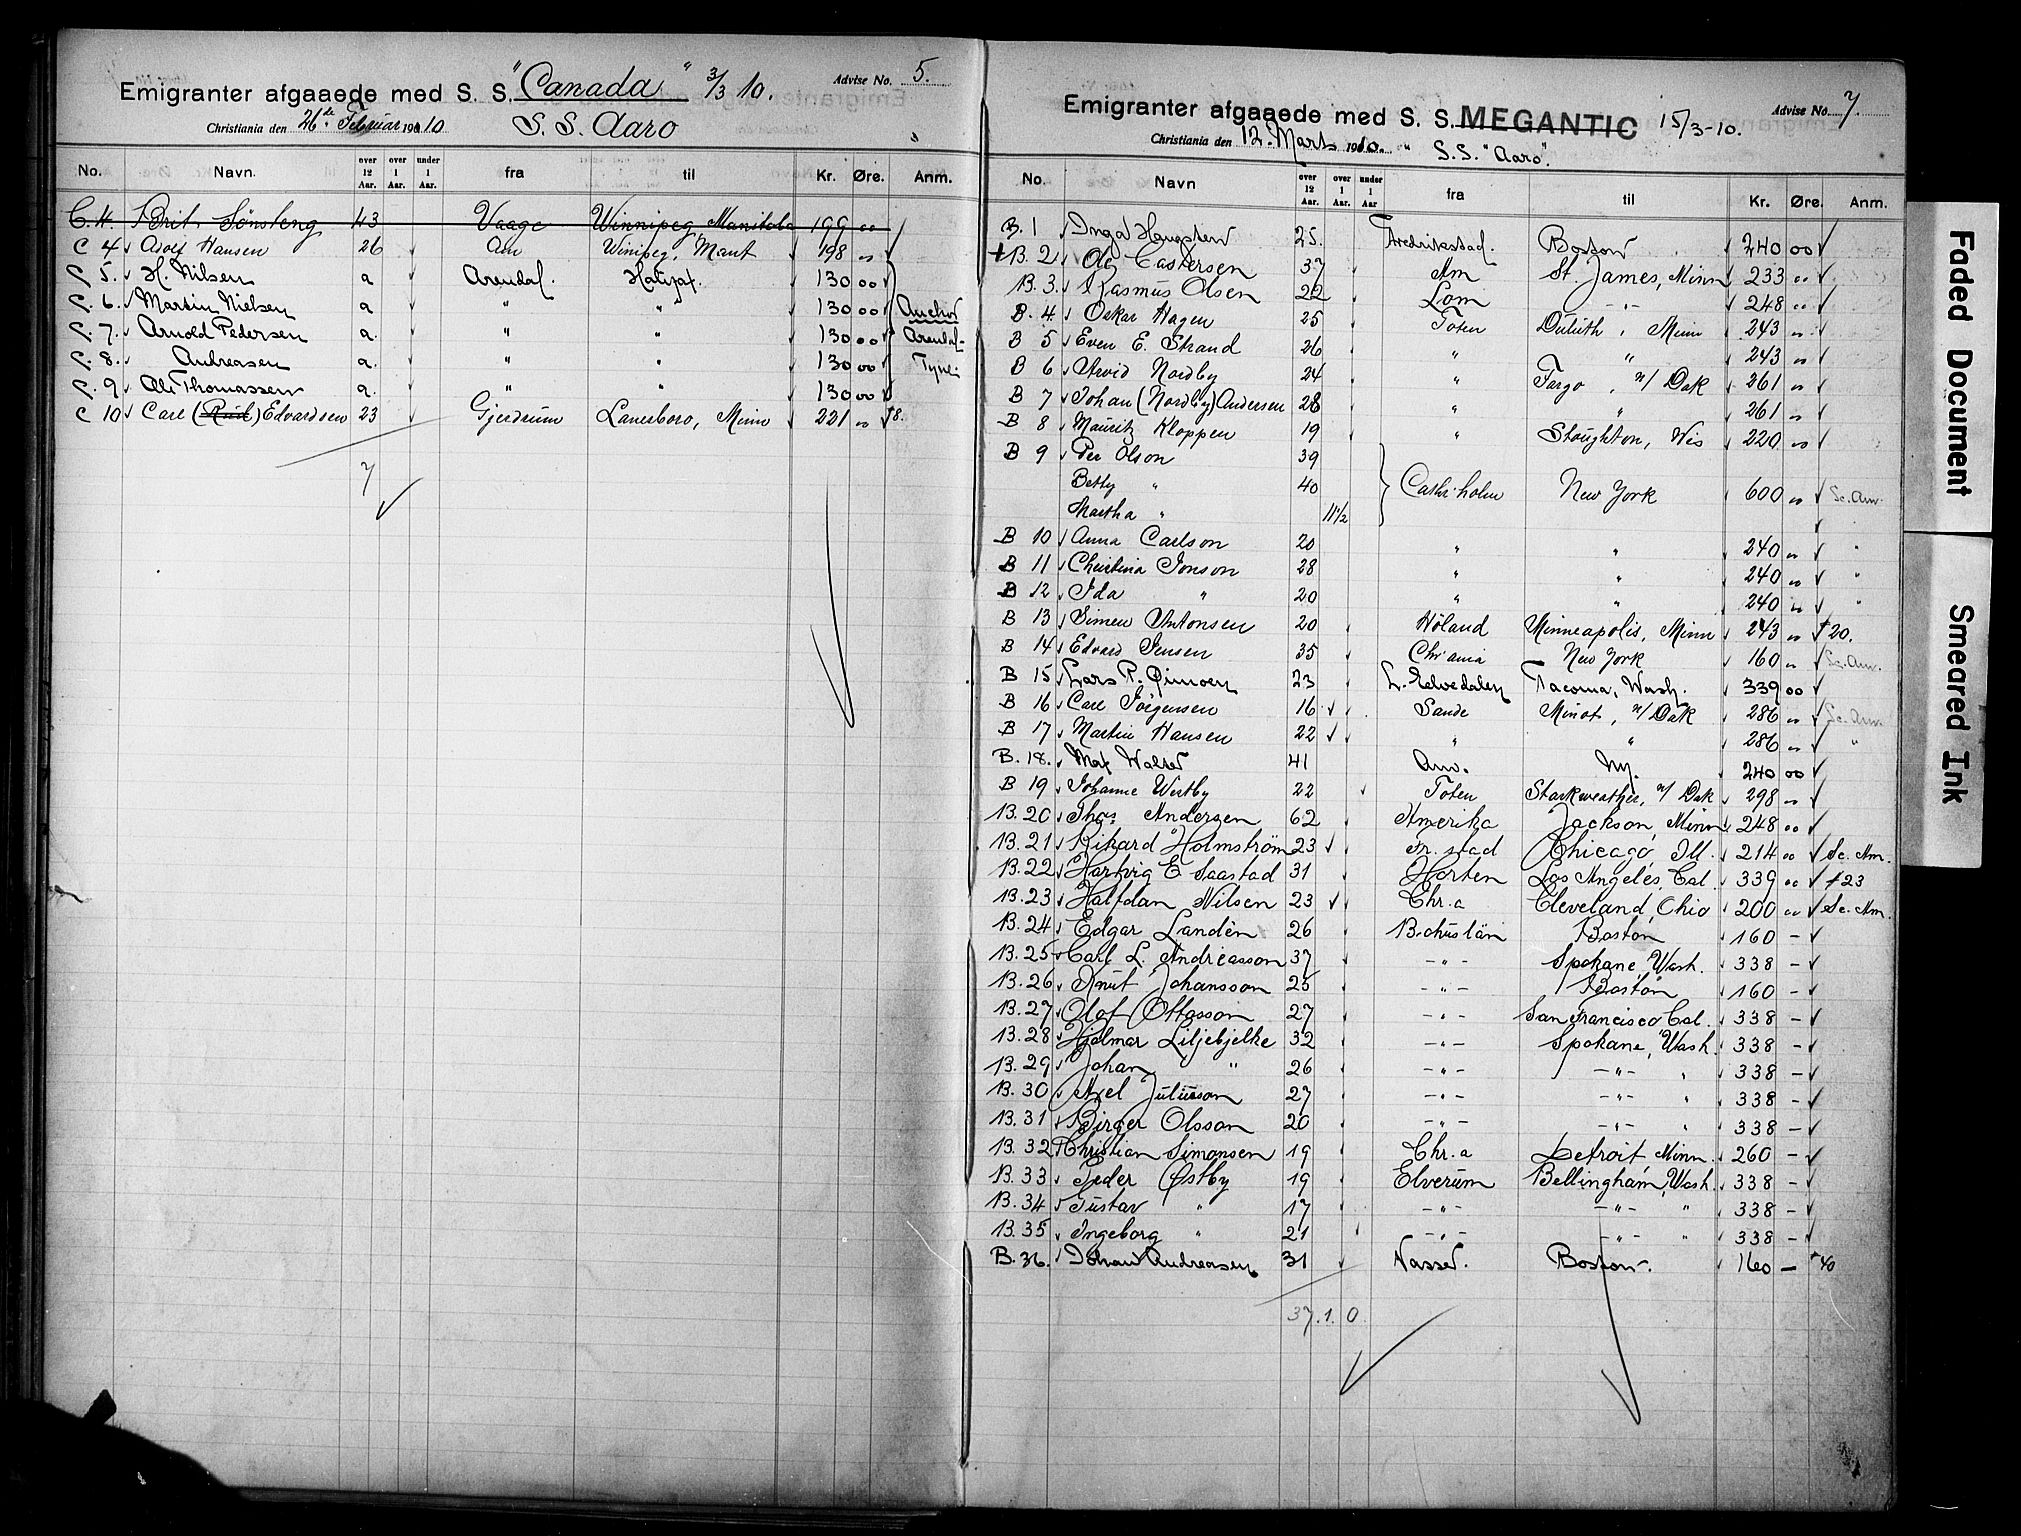 Emigranter afgaaede med S. S. "Canada" 3/3 10. Advise No. 5.
Christiania den 26de Februar 1910 S. S. Aaro
No. Navn. over 12 Aar. over 1 Aar. under 1 Aar. fra til Kr. Øre. Anm.
C. 4. Brit Sönsteng 43 Vaage Winnipeg Manitoba 199 00
C 4 Adolf Hansen 26 Am Winipeg, Mant 198 "
C. 5. H. Nilsen a Arendal. Halifax. 130 00
C. 6. Martin Nielsen a " " 130 00 Anchor
C. 7. Arnold Pedersen a. " " 130 00 Arendal-
C. 8. Andreasen a. " " 130 00 Tyne.
C. 9 Ole Thomassen a. " " 130 00
C 10 Carl (Rud) Edvardsen 23 Gjerdrum Lanesboro, Minn 221 " +8.
7
Emigranter afgaaede med S. S. MEGANTIC 15/3-10. Advise No. 7.
Christiania den 12. Marts 1910. " S.S. "Aaro".
No. Navn over 12 Aar. over 1 Aar. under 1 Aar fra til Kr. Øre. Anm.
B. 1 Inga Haugsten 25. Fredriksstad. Boston 240 00
+B. 2 Ole Castersen 37 Am St. James, Minn 233 "
B. 3. Rasmus Olsen 22 Lom -"- 248 "
B. 4. Oskar Hagen 25 Toten Duluth, Minn 243 "
B 5 Even E. Strand 26 " " 243 "
B 6 Arvid Nordby 24 " Fargo, N/ Dak 261 "
B 7 Johan (Nordby) Andersen 28 " " 261 "
B 8 Mauritz Kloppen 19 " Stoughton, Wis 220 "
B 9 Per Olson 39
Betty " 40 Cathr.holm New York 600 " Sc. Am.
Martha " 11 1/2
B 10 Anna Carlson 20 " " 240 " "
B 11 Christina Jonson 28 " " 240 " "
B 12 Ida " 20 " " 240 " "
B 13 Simen Antonsen 20 Höland Minneapolis, Minn 243 " +20.
B 14 Edvard Jensen 35 Chr'ania New York 160 " Sc. Am.
B 15 Lars P. Qimoen 23 L. Elvedalen Tacoma, Wash. 339 00
B 16 Carl Jörgensen 16 Sande Minot, N/ Dak 286 " Sc. Am.
B 17 Martin Hansen 22 " " 286 " "
B. 18. Max Walter 41 Am. Ny. 240 00
B 19 Johanne Westby 22 Toten Starkweather, N/ Dak 298 "
B. 20 Thos. Andersen 62 Amerika Jackson, Minn 248 00
B. 21 Rikard Holmström 23 Fr. stad Chicago, Ill. 214 00 Sc. Am.
B. 22 Hartvig E Saastad 31 Horten Los Angeles, Cal 339 00 +23
B. 23 Halfdan Nilsen 23 Chr.a Cleveland, Ohio 200 00 Sc. Am.
B. 24 Edgar Landén 26 Bohuslän Boston 160 -
B. 25 Carl L. Andreasson 37 -"- Spokane, Wash. 338 -
B. 26 Knut Johansson 25 -"- Boston 160 -
B. 27 Olof Ottosson 27 -"- San Francisco Cal. 338 -
B. 28 Hjalmar Liljebjelke 32 -"- Spokane, Wash. 338 -
B. 29 Johan " 26 -"- -"- " 338 -
B. 30 Axel Juliusson 27 -"- -"- " 338 -
B. 31 Birger Olsson 20 -"- -"- " 338 -
B. 32 Christian Simonsen 19 Chr.a Detroit Minn. 260 -
B. 33 Peder Østby 19 Elverum Bellingham, Wash. 338 -
B. 34 Gustav " 17 -"- -"- " 338 -
B. 35 Ingeborg " 21 -"- -"- " 338 -
B. 36. Johan Andreasen 31 Nasset. Boston. 160 - +40
37. 1. 0
Faded Document
Smeared Ink